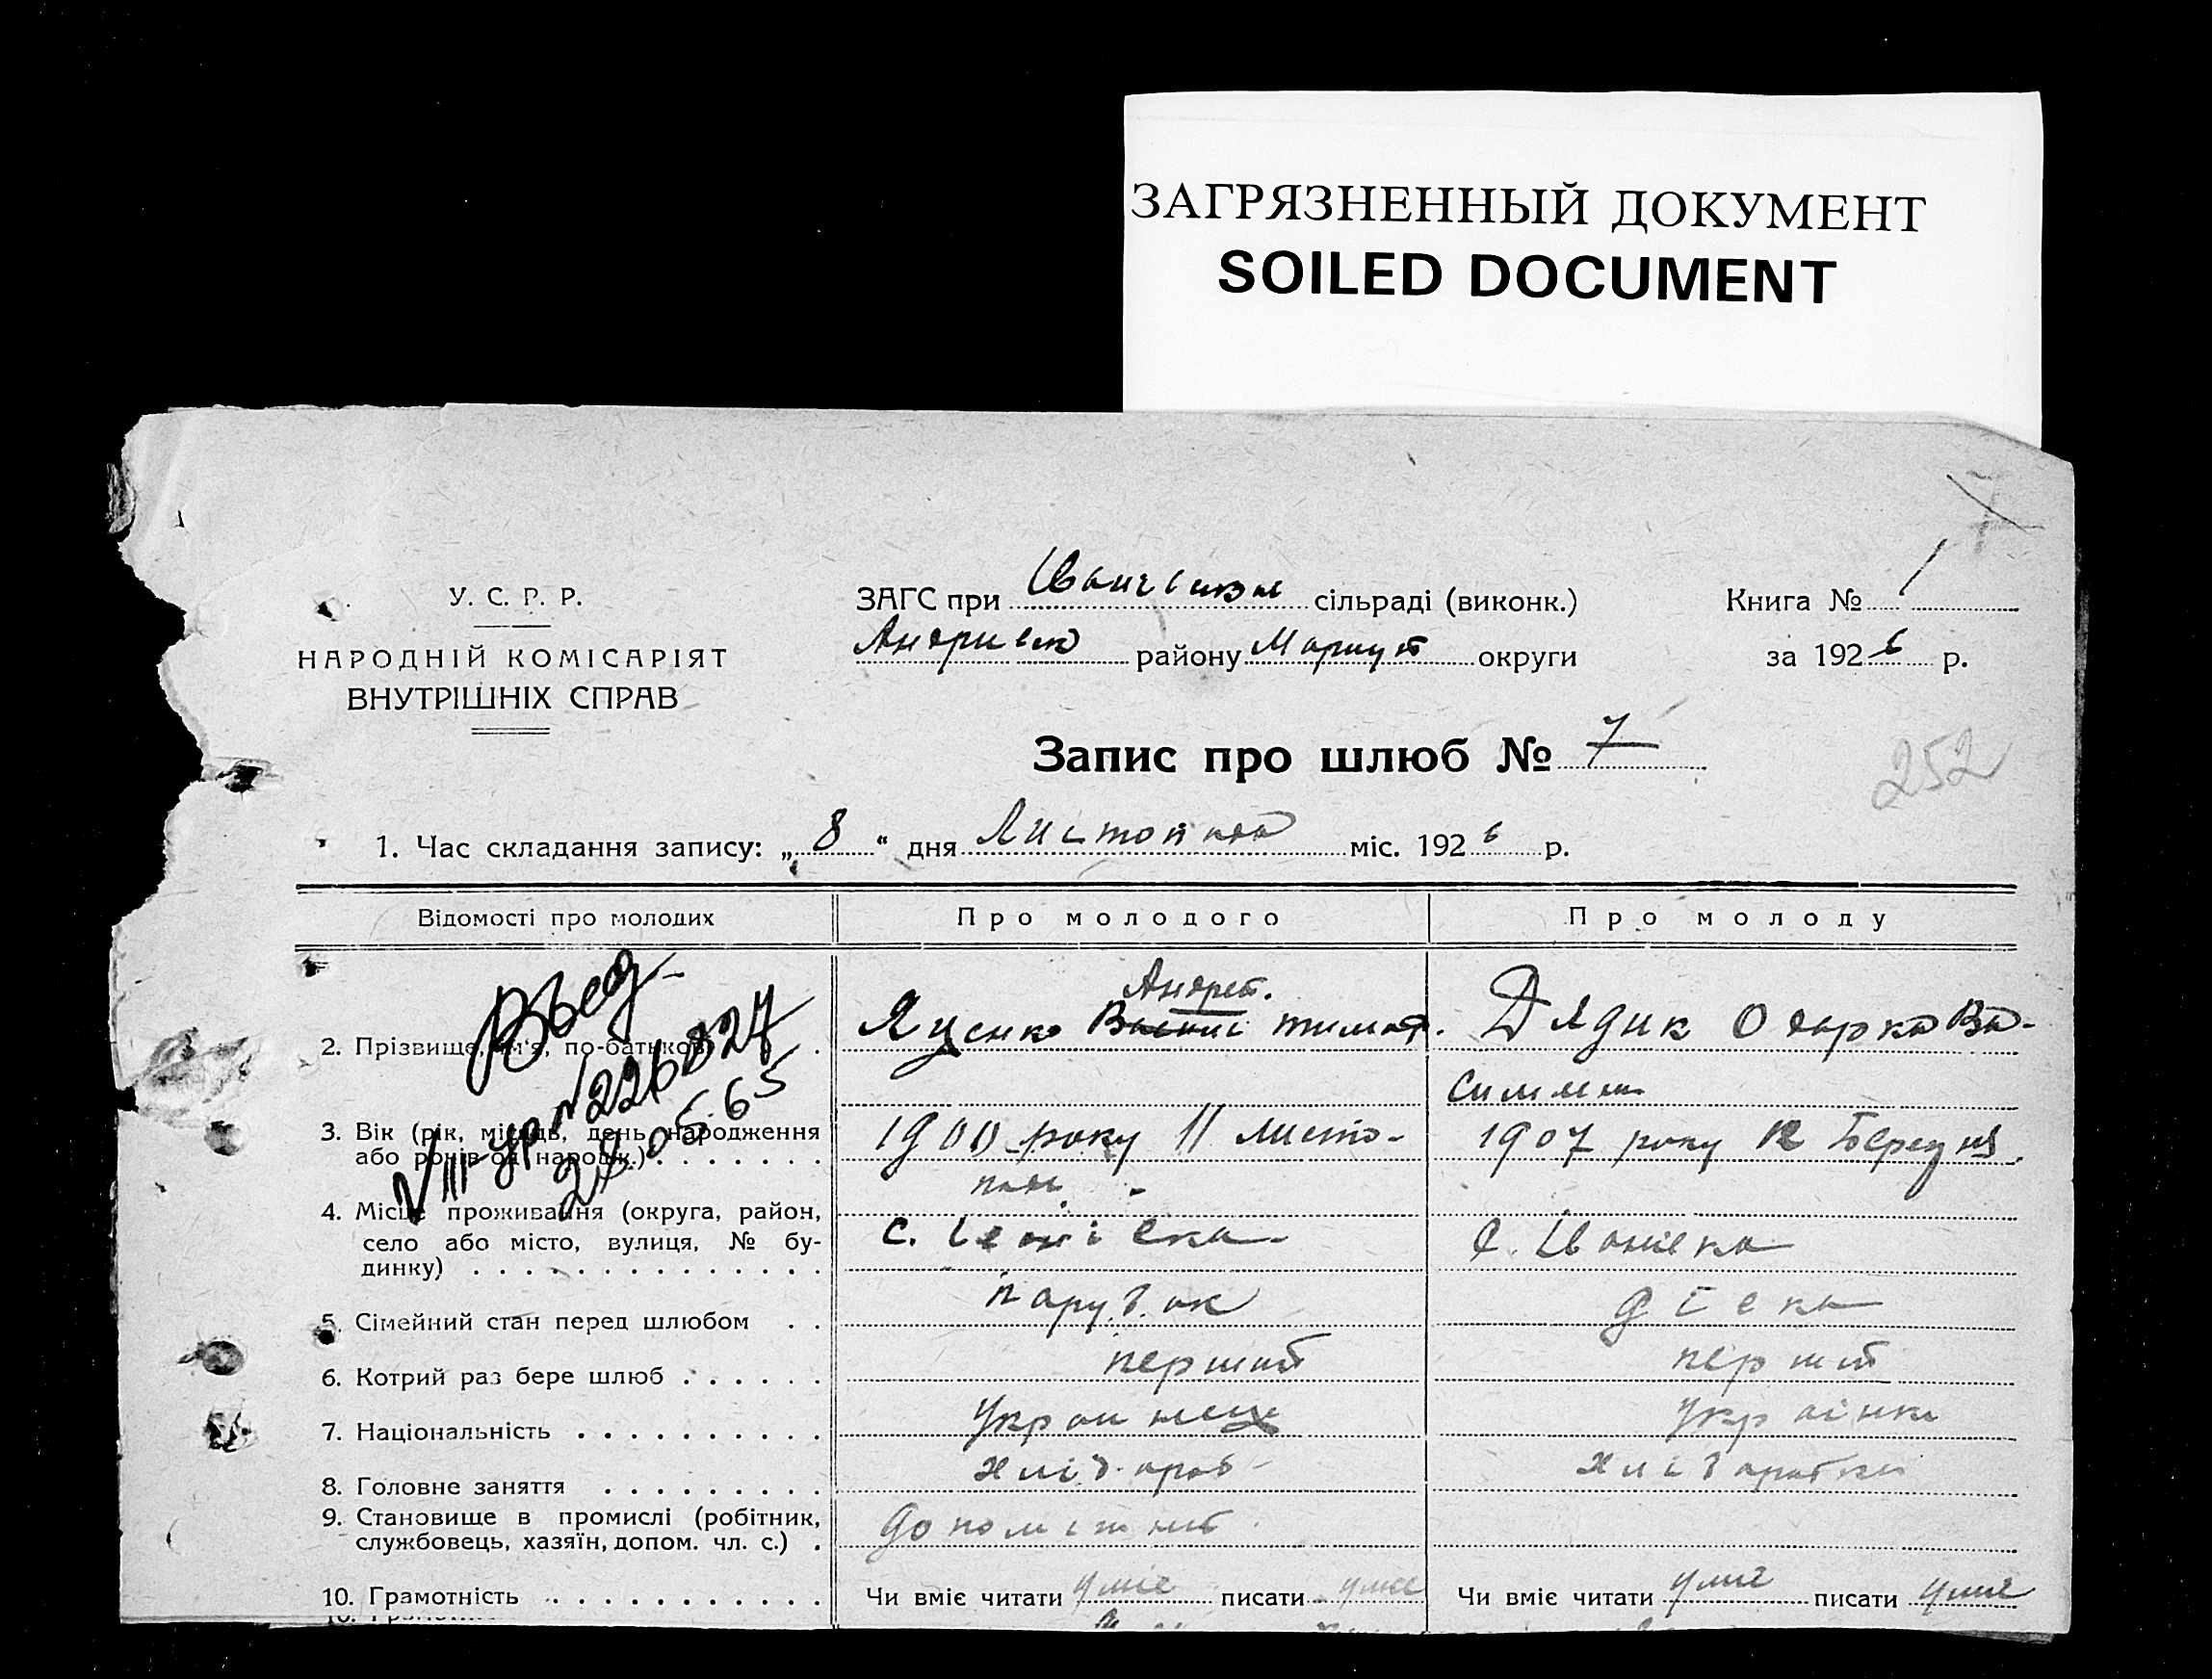 ЗАГРЯЗНЕННЫЙ ДОКУМЕНТ
SOILED DOCUMENT
У. С. Р. Р.
НАРОДНІЙ КОМІСАРІЯТ
ВНУТРІШНІХ СПРАВ
ЗАГС при сільраді (виконк.)
району округи
Книга № 1
за 1926 р.
Запис про шлюб № 7
252
1. Час складання запису: „8“ дня Листопада міс. 1926 р.
Відомості про молодих
Про молодого
Про молоду
2. Прізвище, ім'я, по-батькові
Андрей.
Яценко Тимоф.
Дядик Одарка Ва-
силивн
№226827
28.05.65
3. Вік (рік, місяць, день народження
або років од народж.)
1900 року 11 листо-
пада
1907 року 12 Березня.
4. Місце проживання (округа, район,
село або місто, вулиця, № бу-
динку)
с. Іванівка
с. Іванівка
5. Сімейний стан перед шлюбом
парубок
дівка
6. Котрий раз бере шлюб
перший
перший
7. Національність
Украинець
Українка
8. Головне заняття
хлібороб
хліборобка
9. Становище в промислі (робітник,
службовець, хазяїн, допом. чл. с.)
допоміжний
10. Грамотність
Чи вміє читати уміє писати уміє
Чи вміє читати уміє писати уміє